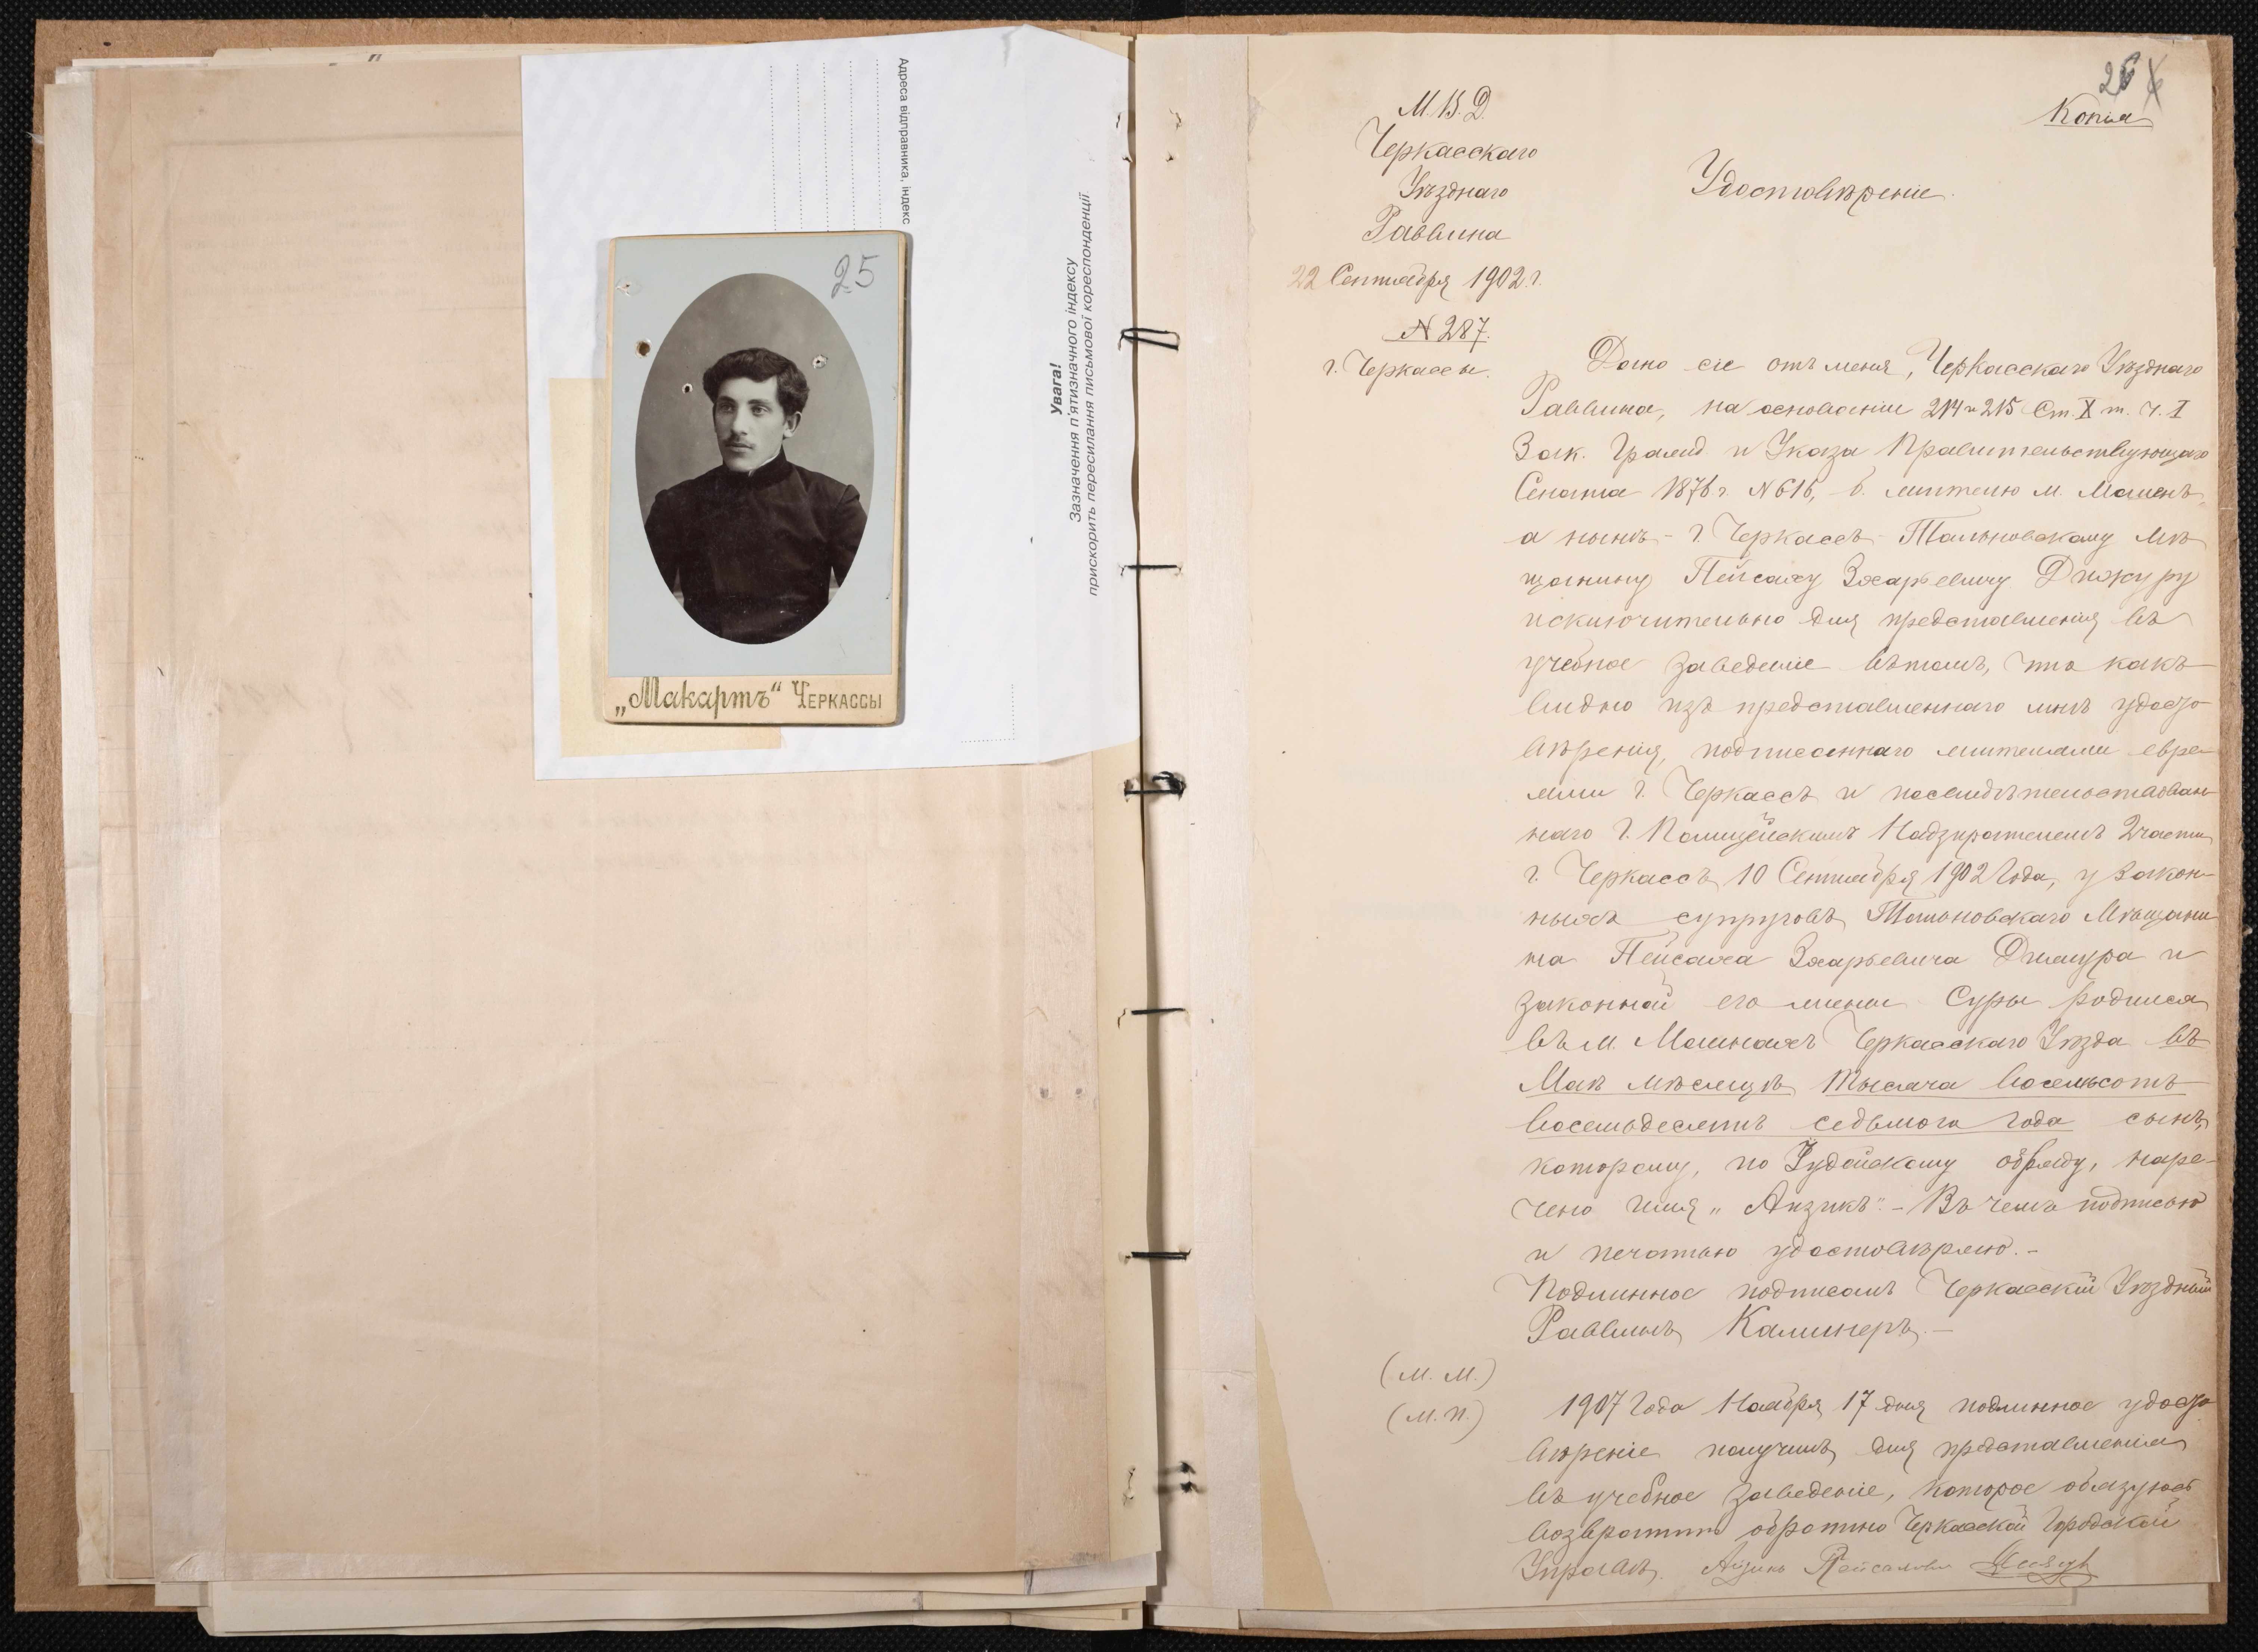 Адреса відправника, індекс
Увага!
Зазначення п'ятизначного індексу
прискорить пересилання письмової кореспонденції
25
„Макартъ“ Черкассы
26
Копія
М. В. Д.
Черкасскаго
Уѣзднаго
Раввина
22 Сентября 1902 г.
№ 287.
г. Черкассы.
Удостовѣреніе.
Дано сіе отъ меня, Черкасскаго Уѣзднаго
Раввина, на основаніи 214 и 215 Ст. X т. ч. I
Зак. Гражд. и Указа Правительствующаго
Сената 1876 г. № 616, б. жителю м. Мошенъ,
а нынѣ - г. Черкассъ - Тальновскому Мѣ
щанину Пейсаху Зхарьевичу Дижуру
исключительно для представленія въ
учебное заведеніе въ томъ, что какъ
видно изъ представленнаго мнѣ удосто
вѣренія, подписаннаго жителями евре-
ями г. Черкассъ и посвидѣтельствован-
наго г. Полицейскимъ Надзирателемъ 2 части
г. Черкассъ 10 Сентября 1902 года, у закон-
ныхъ супруговъ Тальновскаго Мѣщани
на Пейсаха Зхарьевича Дижура и
законной его жены Суры родился
въ м. Мошнахъ Черкасскаго Уѣзда въ
Маѣ мѣсяцѣ тысяча восемьсотъ
восемьдесятъ седьмого года сынъ,
которому, по Іудейскому обряду, наре-
чено имя „Аизикъ“. - Въ чемъ подписью
и печатью удостовѣряю. -
Подлинное подписалъ Черкасскій Уѣздный
Раввинъ Калишеръ. -
(М. М.)
(М. П.)
1907 года Ноября 17 дня подлинное удосто
вѣреніе получилъ для представленія
въ учебное заведеніе, которое обязуюсь
возвратить обратно Черкасской Городской
Управѣ. Айзикъ Пейсаховъ Дижуръ